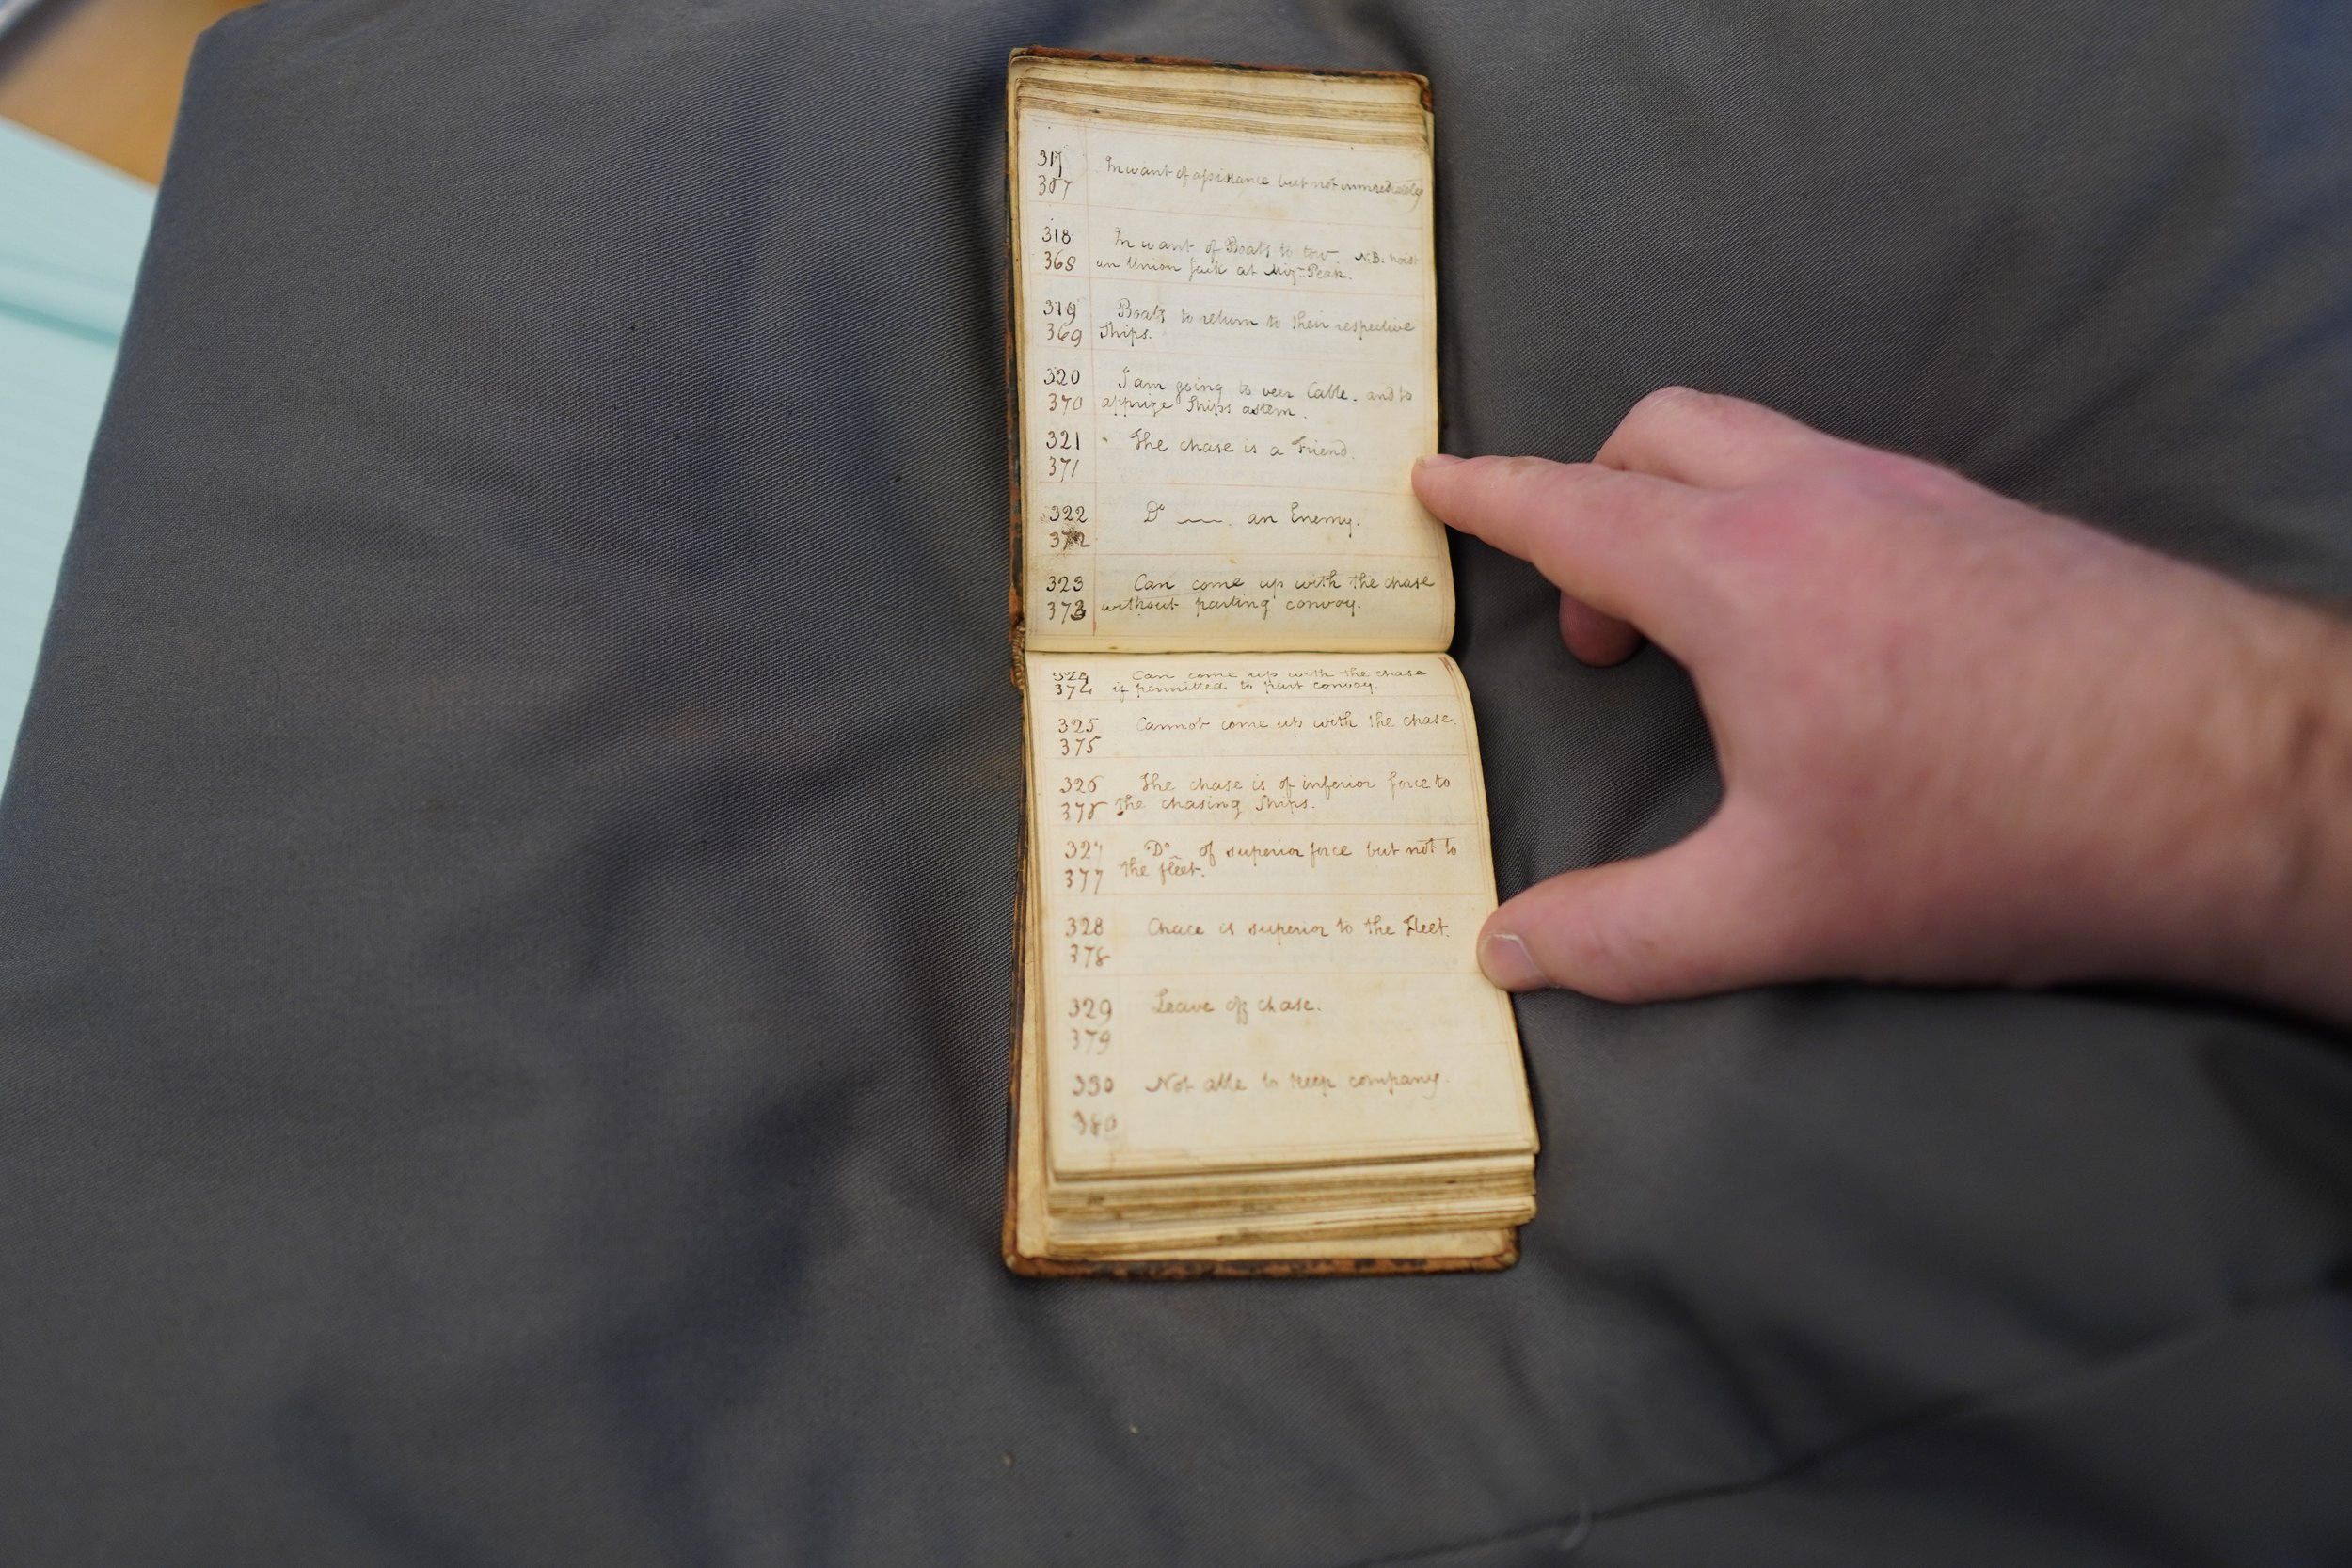 317 In want of assistance but not immediately
367
318 In want of Boats to tow. N.B: hoist
368 an Union Jack at Miz:n Peak.
319 Boats to return to their respective
369 Ships.
320 I am going to veer Cable. and to
370 apprize Ships astern.
321 The chase is a Friend.
371
322 Do ___ an Enemy.
372
323 Can come up with the chase
373 without parting convoy.
324 Can come up with the chase
374 if permitted to part convoy.
325 Cannot come up with the chase.
375
326 The chase is of inferior force to
376 the chasing Ships.
327 Do of superior force but not to
377 the fleet.
328 Chace is superior to the Fleet.
378
329 Leave off chase.
379
330 Not able to keep company.
380